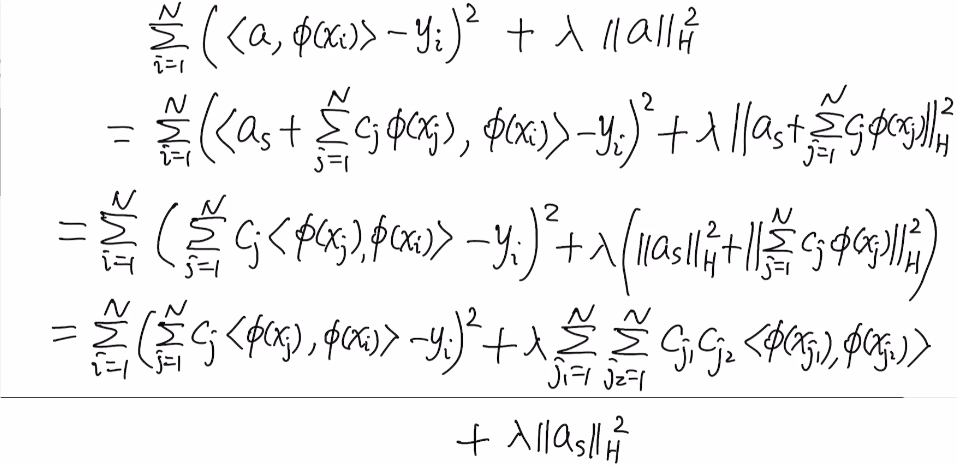 \sum_{i=1}^{N} ( <a, φ(x_i)> - y_i )^2 + λ ||a||_H^2
= \sum_{i=1}^{N} ( <a_s + \sum_{j=1}^{N} c_j φ(x_j), φ(x_i)> - y_i )^2 + λ || a_s + \sum_{j=1}^{N} c_j φ(x_j) ||_H^2
= \sum_{i=1}^{N} ( \sum_{j=1}^{N} c_j <φ(x_j), φ(x_i)> - y_i )^2 + λ ( ||a_s||_H^2 + || \sum_{j=1}^{N} c_j φ(x_j) ||_H^2 )
= \sum_{i=1}^{N} ( \sum_{j=1}^{N} c_j <φ(x_j), φ(x_i)> - y_i )^2 + λ \sum_{j_1=1}^{N} \sum_{j_2=1}^{N} c_{j_1} c_{j_2} <φ(x_{j_1}), φ(x_{j_2})>
+ λ ||a_s||_H^2